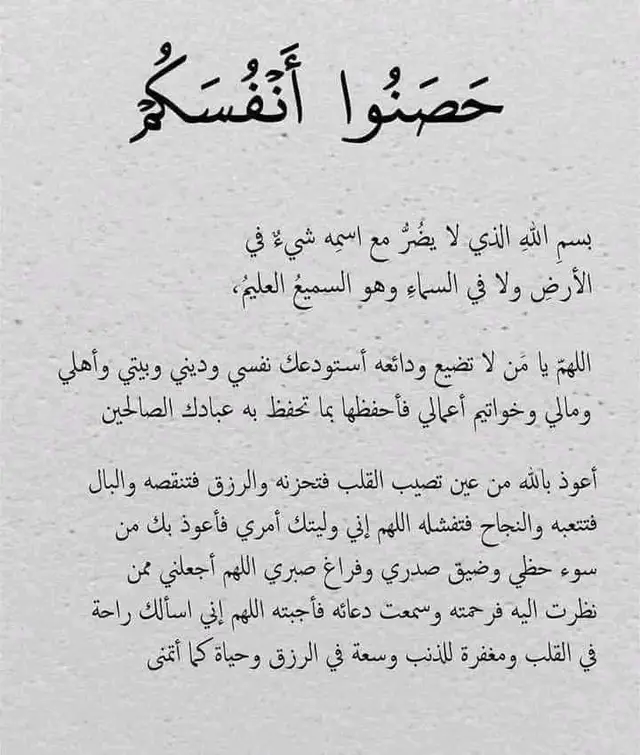 حَصَنُوا أَنْفُسَكُمْ
بسمِ اللهِ الذي لا يضُرُّ مع اسمِه شيءٌ في
الأرضِ ولا في السماءِ وهو السميعُ العليمُ،
اللهمّ يا مَن لا تضيع ودائعه أستودعك نفسي وديني وبيتي وأهلي
ومالي وخواتيم أعمالي فأحفظها بما تحفظ به عبادك الصالحين
أعوذ بالله من عين تصيب القلب فتحزنه والرزق فتنقصه والبال
فتتعبه والنجاح فتفشله اللهم إني وليتك أمري فأعوذ بك من
سوء حظي وضيق صدري وفراغ صبري اللهم أجعلني ممن
نظرت اليه فرحمته وسمعت دعائه فأجبته اللهم إني اسألك راحة
في القلب ومغفرة للذنب وسعة في الرزق وحياة كما أتمنى